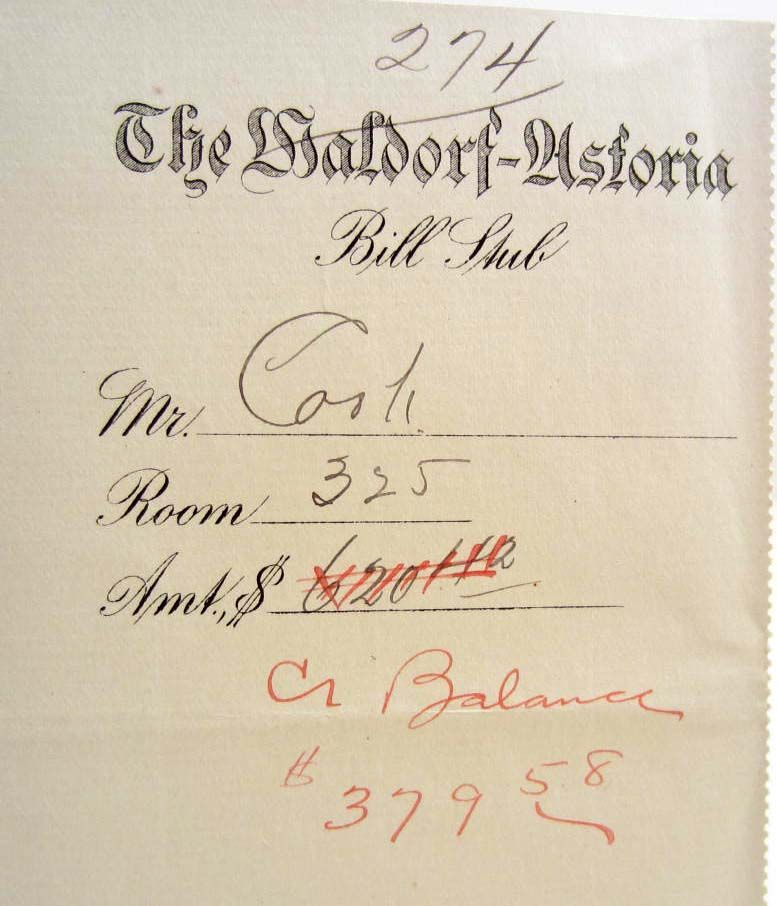 274
The Waldorf-Astoria
Bill Stub
Mr. Cash
Room 325
Amt., $ 620.42
Cr Balance
$ 379 58